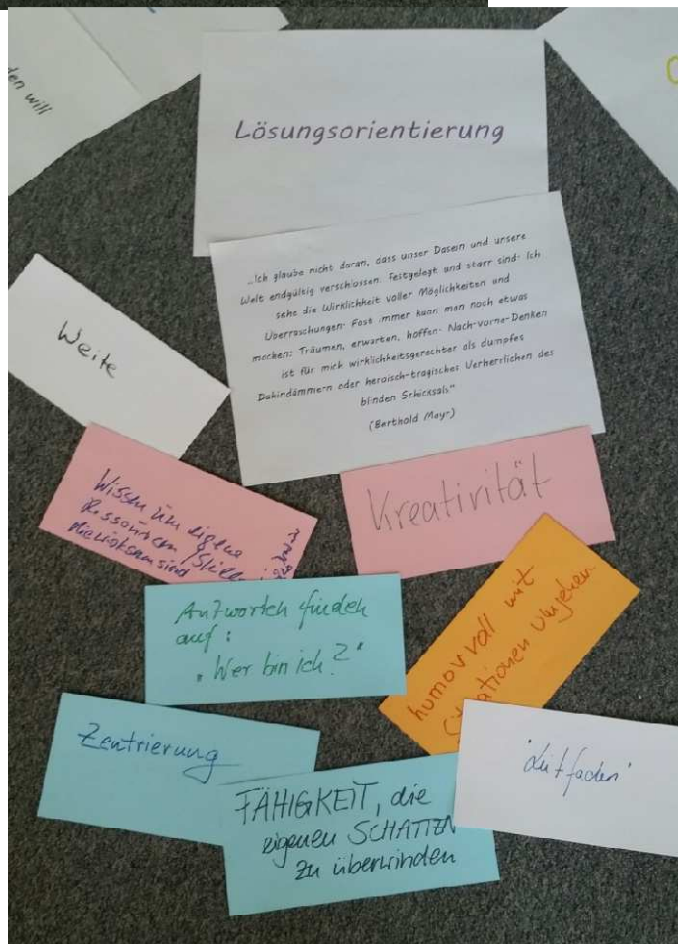 den will
Lösungsorientierung
„Ich glaube nicht daran, dass unser Dasein und unsere
Welt endgültig verschlossen, festgelegt und starr sind. Ich
sehe die Wirklichkeit voller Möglichkeiten und
Überraschungen. Fast immer kann man noch etwas
machen: Träumen, erwarten, hoffen. Nach-vorne-Denken
ist für mich wirklichkeitsgerechter als dumpfes
Dahindämmern oder heroisch-tragisches Verherrlichen des
blinden Schicksals"
(Berthold Mayr)
Weite
Kreativität
Wissen um eigene
Ressourcen / Skills
die wirksam sind
Antworten finden
auf:
"Wer bin ich?"
humorvoll mit
Situationen umgehen
Zentrierung
'Leitfaden'
FÄHIGKEIT, die
eigenen SCHATTEN
zu überwinden